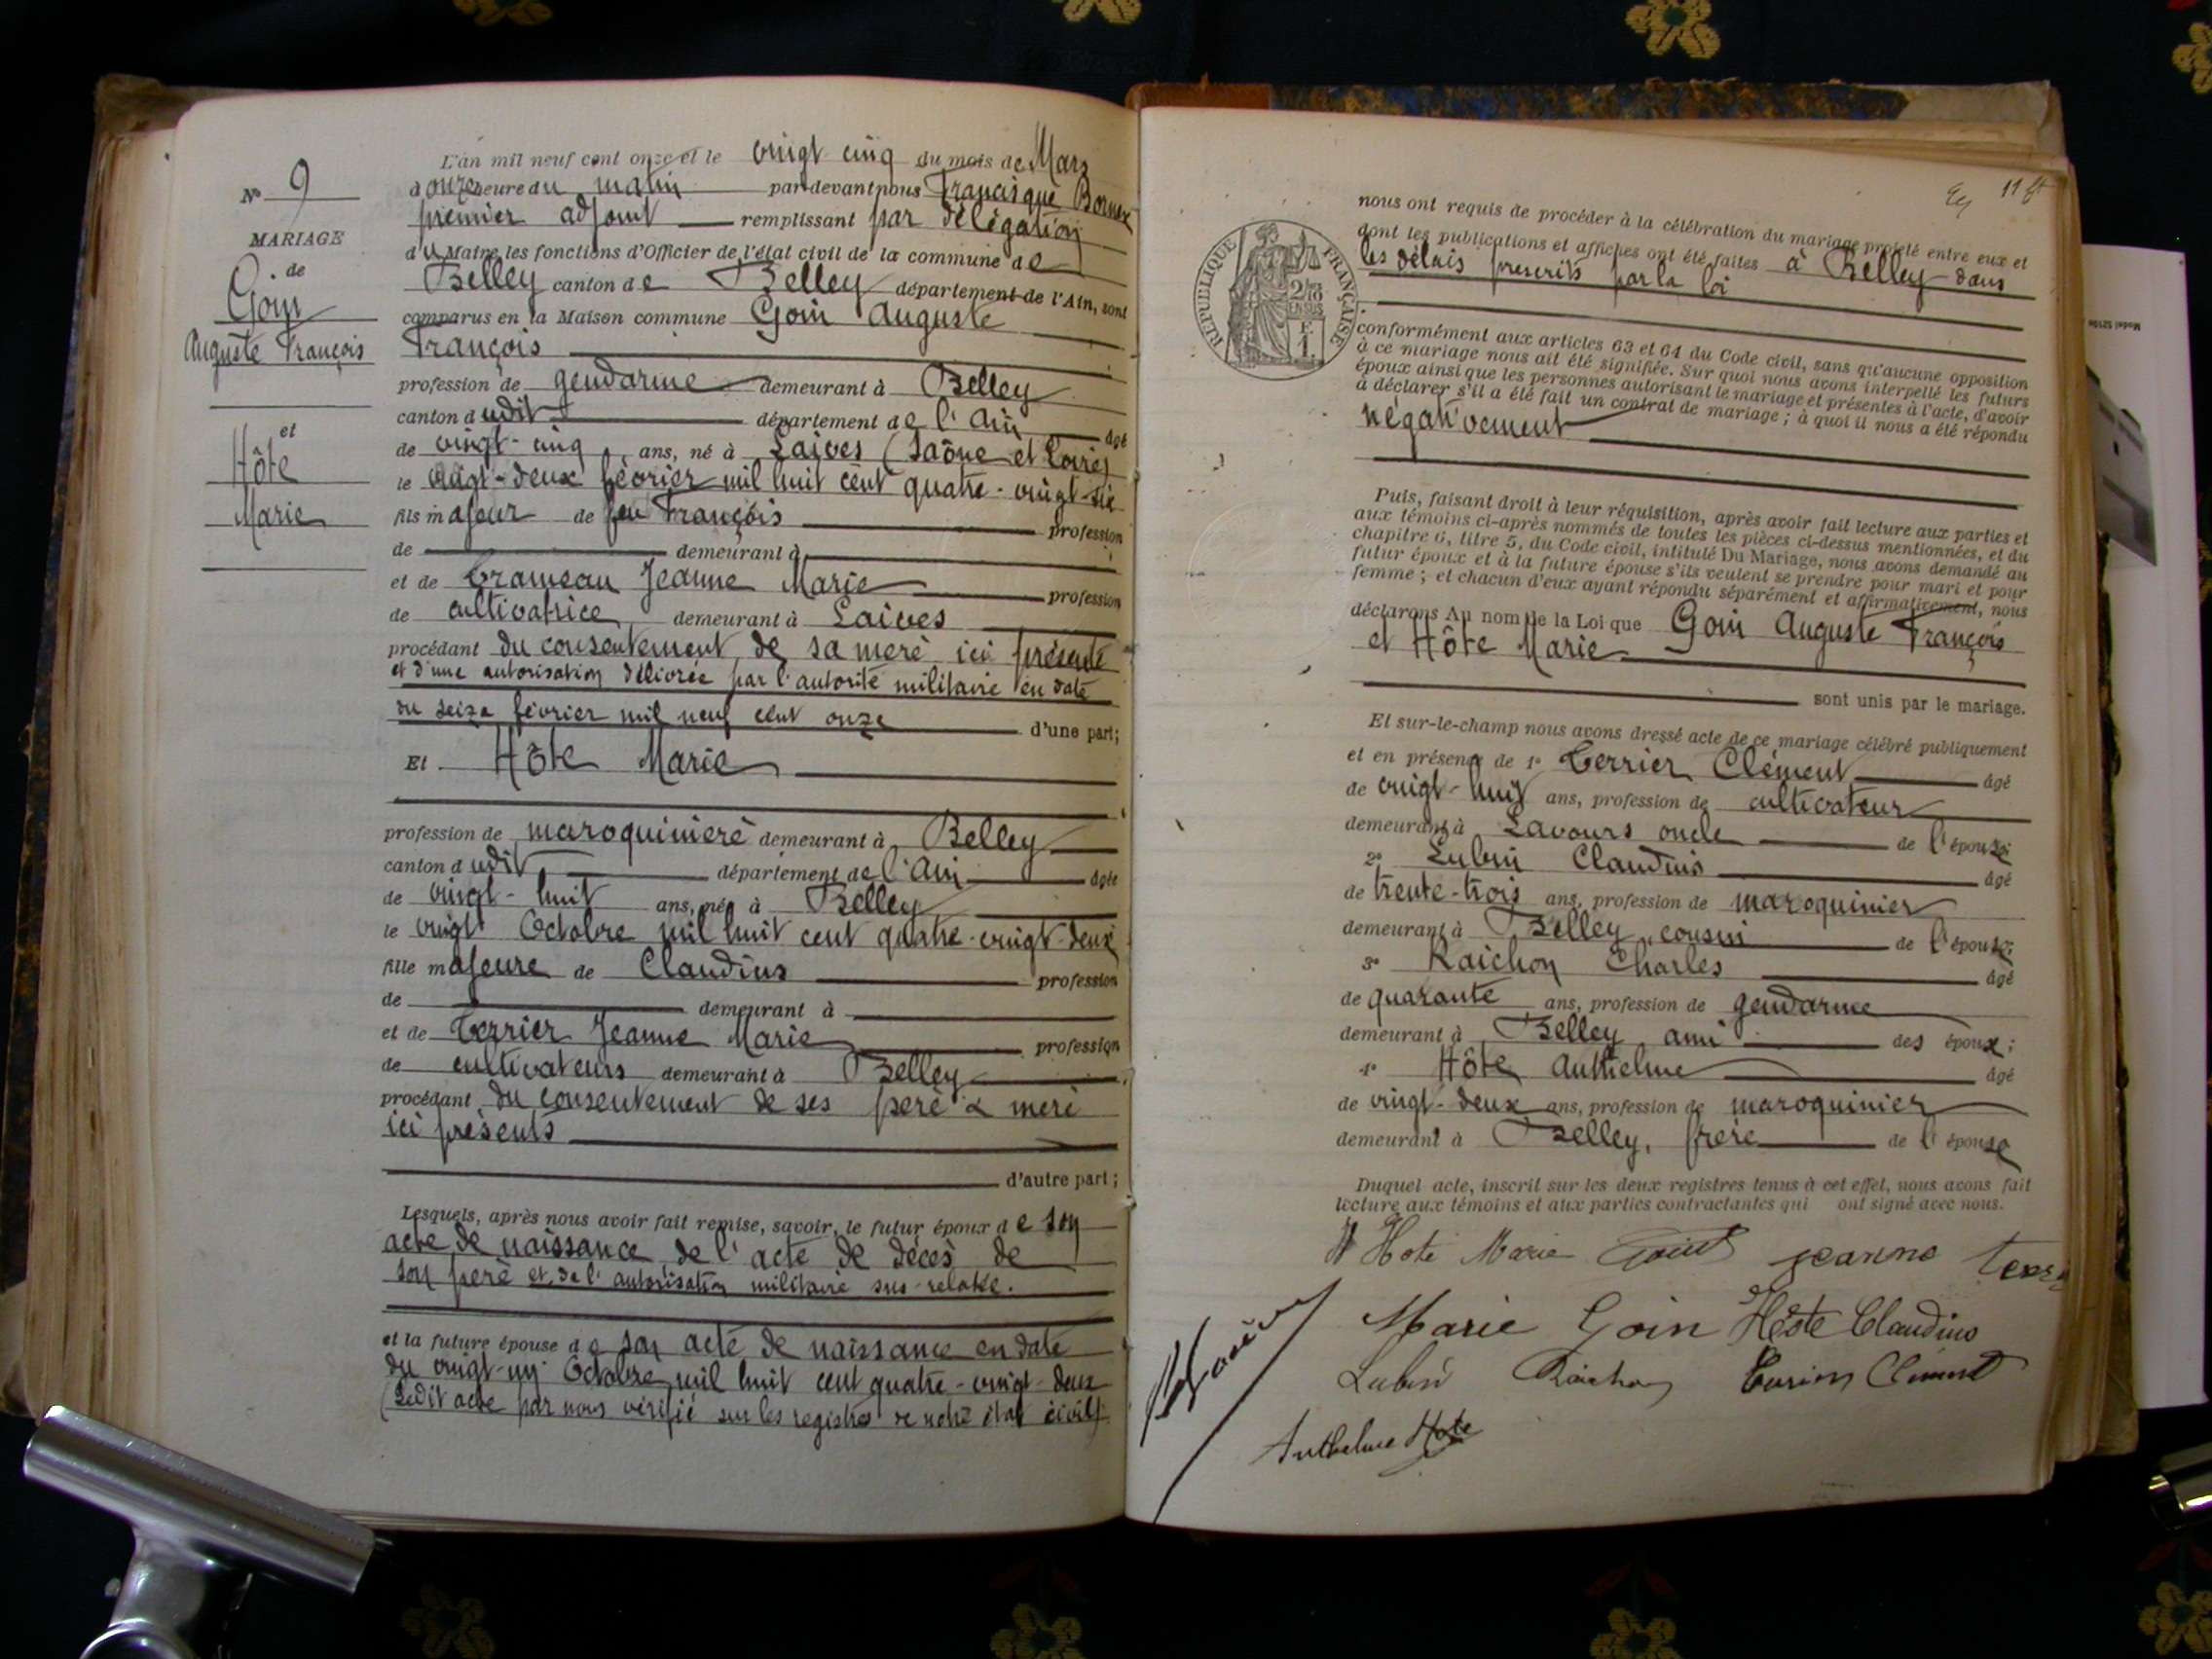 N° 9
MARIAGE
de
Goin
Auguste François
et
Hôte
Marie
L'an mil neuf cent onze et le vingt cinq du mois de Mars
à onze heure du matin par-devant nous Francisque Bornex
premier adjoint remplissant par délégation
du Maire, les fonctions d'Officier de l'état civil de la commune de
Belley canton de Belley département de l'Ain, sont
comparus en la Maison commune Goin Auguste
François
profession de gendarme demeurant à Belley
canton dudit département de l'Ain âgé
de vingt-cinq ans, né à Laives (Saône et Loire)
le vingt-deux février mil huit cent quatre-vingt-six
fils majeur de feu François profession
de demeurant à
et de Trameau Jeanne Marie profession
de cultivatrice demeurant à Laives
procédant du consentement de sa mère ici présente
et d'une autorisation délivrée par l'autorité militaire en date
du seize février mil neuf cent onze d'une part;
Et Hôte Marie
profession de maroquinière demeurant à Belley
canton dudit département de l'Ain âgée
de vingt-huit ans, née à Belley
le vingt Octobre mil huit cent quatre-vingt-deux
fille majeure de Claudius profession
de demeurant à
et de Terrier Jeanne Marie profession
de cultivateurs demeurant à Belley
procédant du consentement de ses père & mère
ici présents
d'autre part;
Lesquels, après nous avoir fait remise, savoir, le futur époux de son
acte de naissance de l'acte de décès de
son père et de l'autorisation militaire sus-relatée.
et la future épouse de son acte de naissance en date
du vingt-un Octobre mil huit cent quatre-vingt-deux
(Ledit acte par nous vérifié sur les registres de notre état civil)
11
nous ont requis de procéder à la célébration du mariage projeté entre eux et
dont les publications et affiches ont été faites à Belley dans
les délais prescrits par la loi
RÉPUBLIQUE FRANÇAISE
2/10
EN SUS
F.
1.
conformément aux articles 63 et 64 du Code civil, sans qu'aucune opposition
à ce mariage nous ait été signifiée. Sur quoi nous avons interpellé les futurs
époux ainsi que les personnes autorisant le mariage et présentes à l'acte, d'avoir
à déclarer s'il a été fait un contrat de mariage; à quoi il nous a été répondu
négativement
Puis, faisant droit à leur réquisition, après avoir fait lecture aux parties et
aux témoins ci-après nommés de toutes les pièces ci-dessus mentionnées, et du
chapitre 6, titre 5, du Code civil, intitulé Du Mariage, nous avons demandé au
futur époux et à la future épouse s'ils veulent se prendre pour mari et pour
femme; et chacun d'eux ayant répondu séparément et affirmativement, nous
déclarons Au nom de la Loi que Goin Auguste François
et Hôte Marie
sont unis par le mariage.
Et sur-le-champ nous avons dressé acte de ce mariage célébré publiquement
et en présence de 1° Terrier Clément âgé
de vingt-huit ans, profession de cultivateur
demeurant à Lavours oncle de l'épouse
2° Lubin Claudius âgé
de trente-trois ans, profession de maroquinier
demeurant à Belley, cousin de l'épouse;
3° Raichon Charles âgé
de quarante ans, profession de gendarme
demeurant à Belley ami des époux;
4° Hôte Anthelme âgé
de vingt-deux ans, profession de maroquinier
demeurant à Belley, frère de l'épouse
Duquel acte, inscrit sur les deux registres tenus à cet effet, nous avons fait
lecture aux témoins et aux parties contractantes qui ont signé avec nous.
Hote Marie Goin jeanne
Marie Goin Hôte Claudius
Lubin Raichon Terrier Clément
Anthelme Hote